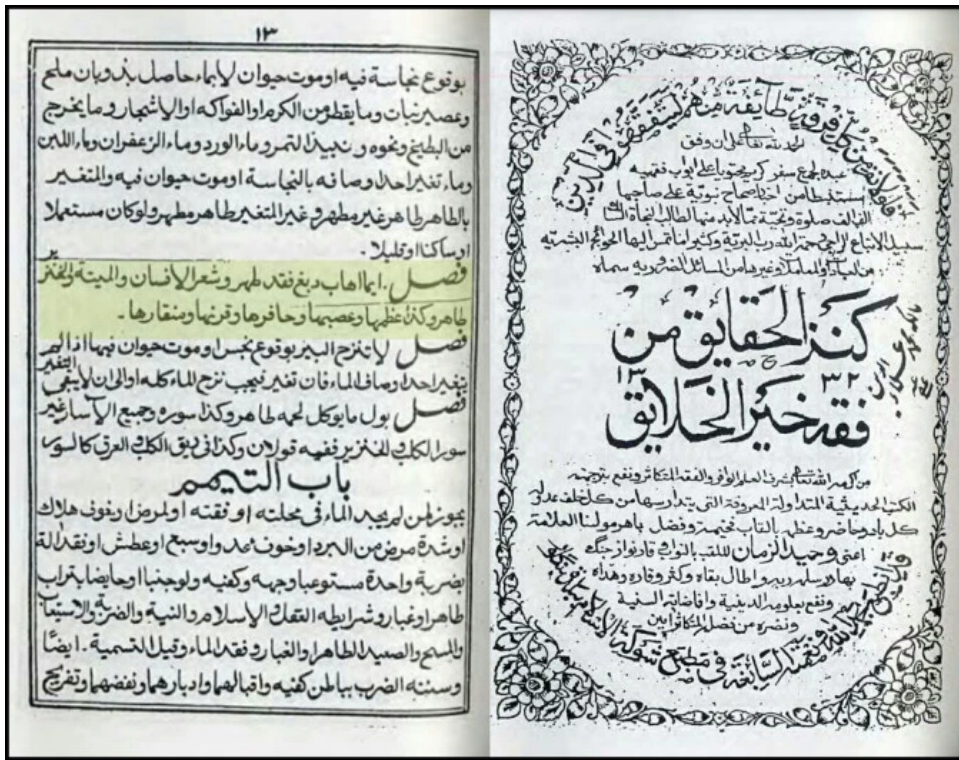 ١٣
بوقوع نجاسة فيه او موت حيوان لابماء حاصل بذوبان ملح
وعصير نبات وما يقطر من الكرم او الفواكه او الاشجار وما يخرج
من البطيخ ونحوه ونبيذ التمر وماء الورد وماء الزعفران وماء اللبن
وماء تغير احد اوصافه بالنجاسة او موت حيوان فيه والمتغير
بالطاهر طاهر غير مطهر وغير المتغير طاهر مطهر ولو كان مستعملا
او ساكنا او قليلا.
فصل. ايما اهاب دبغ فقد طهر وشعر الانسان والميتة والخنزير
طاهر وكذا عظمها وعصبها وحافرها وقرنها ومنقارها.
فصل لا تنزح البير بوقوع نجس او موت حيوان فيها اذا لم
يتغير احد اوصاف الماء فان تغير فيجب نزح الماء كله او الى ان لا يبقى التغير
فصل بول ما يوكل لحمه طاهر وكذا سوره وجميع الآسار غير
سور الكلب والخنزير ففيه قولان وكذا في ريق الكلب والعرق كالسور
باب التيمم
يجوز لمن لم يجد الماء في محلته او نقته او لمرض او خوف هلاك
او شدة مرض من البرد او خوف عدو او سبع او عطش او فقد الة
بضربة واحدة مستوعبا وجهه وكفيه ولو جنبا او حايضا بتراب
طاهر او غبار وشرايطه العقل والاسلام والنية والضربة والاستيعاب
والمسح والصعيد الطاهر او الغبار وفقد الماء وقيل التسمية. ايضًا
وسننه الضرب بباطن كفيه واقبالهما وادبارهما ونفضهما وتفريج
فلولا نفر من كل فرقة منهم طائفة ليتفقهوا في الدين
الحمد لله تعالى ان وفق
عبده لجمع سفر كريم يحتوي على ابواب فقهيه
مستنبطا من احاديث صحاح نبوية على صاحبها
الف الف صلوة وتحية مما لابد منها لطالب النجاة السالك
سبيل الاتباع الراجي رحمة الله رب البرية وكثيرا ما تمس اليها الحوائج البشرية
من العبادة والمعاملة وغيرها من المسائل الضرورية سماه
كنز الحقايق من
فقه خير الخلايق
١٣ ٣٢
من كرمه الله تعالى بشرف العلم الوافر والفقه المتكاثر ونفع بترجمته
الكتب الحديثية المتداولة المعروفة التي يتدارسها من كل خلف عدوله
كل باد وحاضر وعظم بالقاب فخيمة وفضل باهر مولنا العلامة
اعنى وحيد الزمان الملقب بالنواب وقار نواز جنگ
بهادر سلمه ربه واطال بقاه وكثر وقاره وهداه
ونفع بعلومه الدينية وافاضاته السنية
ونصره من فضل المتكاثر ابين
في مطبع شوكة الاسلام